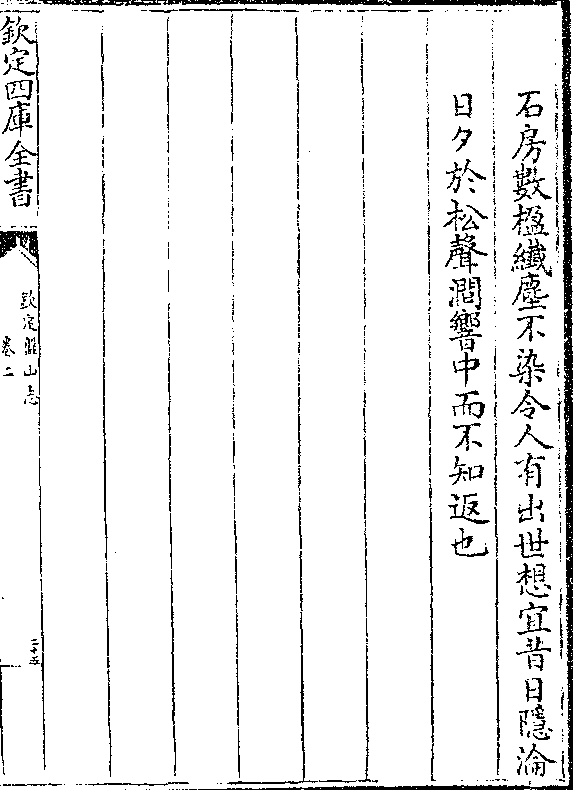 石房數楹纖塵不染令人有出世想宜昔日隱淪
日夕於松聲澗響中而不知返也
欽定四庫全書
欽定盤山志
卷二
二十五